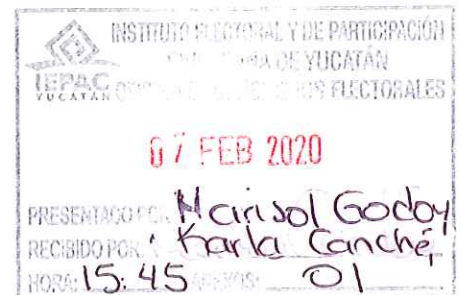 INSTITUTO ELECTORAL Y DE PARTICIPACIÓN
DE YUCATÁN
IEPAC
YUCATÁN
ELECTORALES
07 FEB 2020
PRESENTADO POR: Marisol Godoy
RECIBIDO POR: Karla Canché
HORA: 15:45 ANEXOS: 01